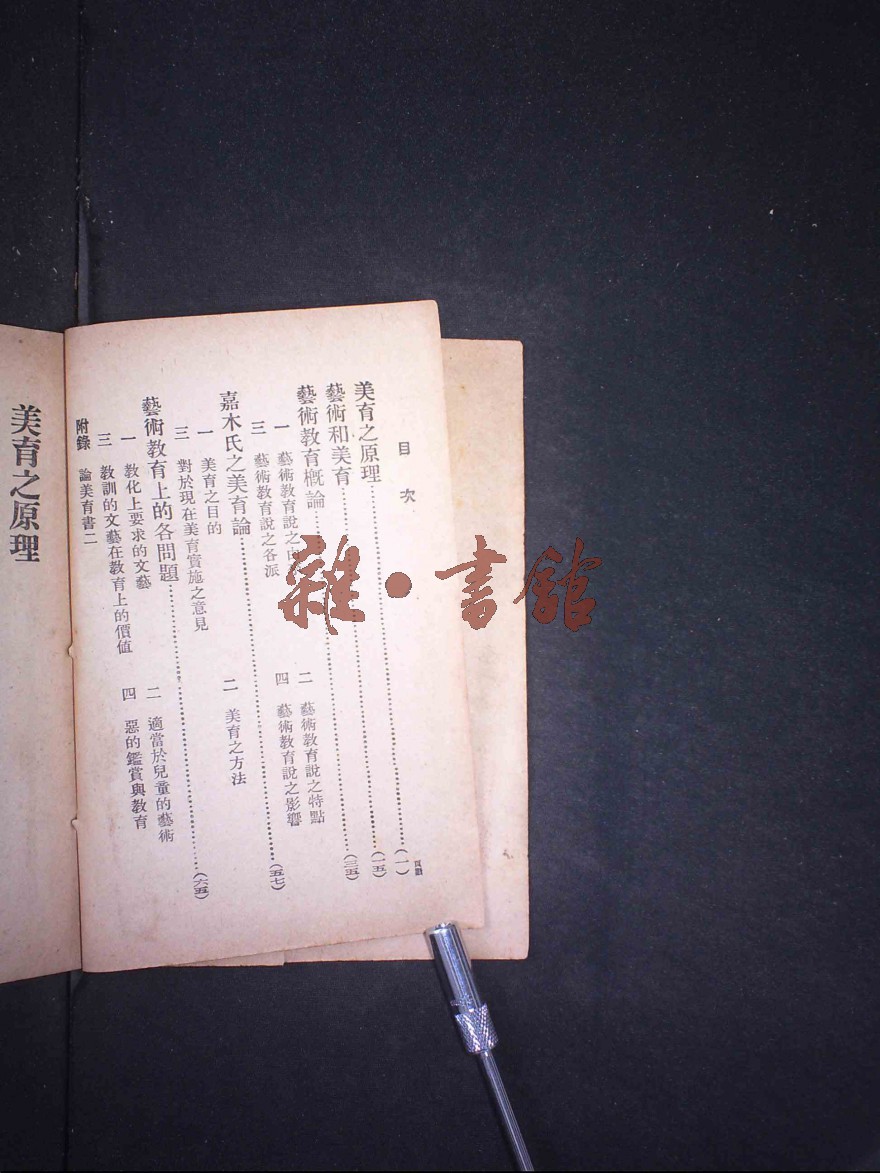 目次
頁數
美育之原理……(一)
藝術和美育……(一五)
藝術教育概論……(三五)
一 藝術教育說之 二 藝術教育說之特點
三 藝術教育說之各派 四 藝術教育說之影響
嘉木氏之美育論……(五七)
一 美育之目的 二 美育之方法
三 對於現在美育實施之意見
藝術教育上的各問題……(六五)
一 教化上要求的文藝 二 適當於兒童的藝術
三 教訓的文藝在教育上的價値 四 惡的鑑賞與教育
附錄 論美育書二
美育之原理
雜·書館